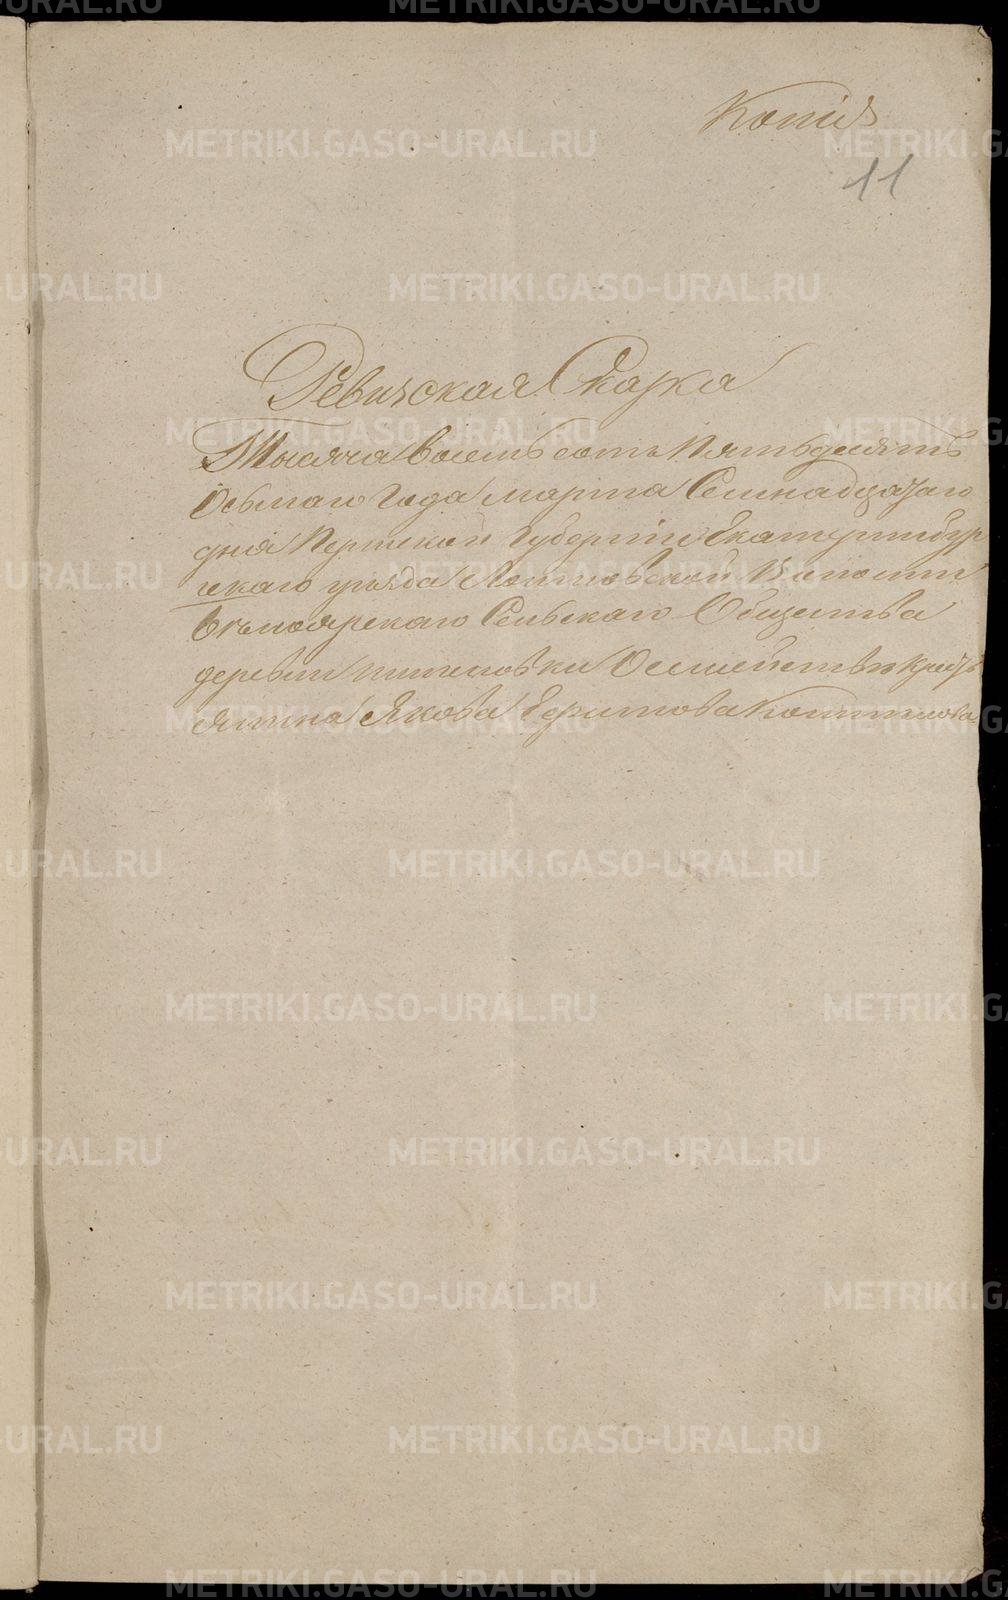 Копія
11
Ревизская Сказка
Тысяча восемь сотъ Пятьдесятъ
Осьмаго Года Марта Семнадцатаго
дня Пермской Губерніи Екатеринбур
скаго уезда Логиновской Волости
Белоярскаго Сельскаго Общества
деревни О семействе Крестъ
янина Якова
METRIKI.GASO-URAL.RU